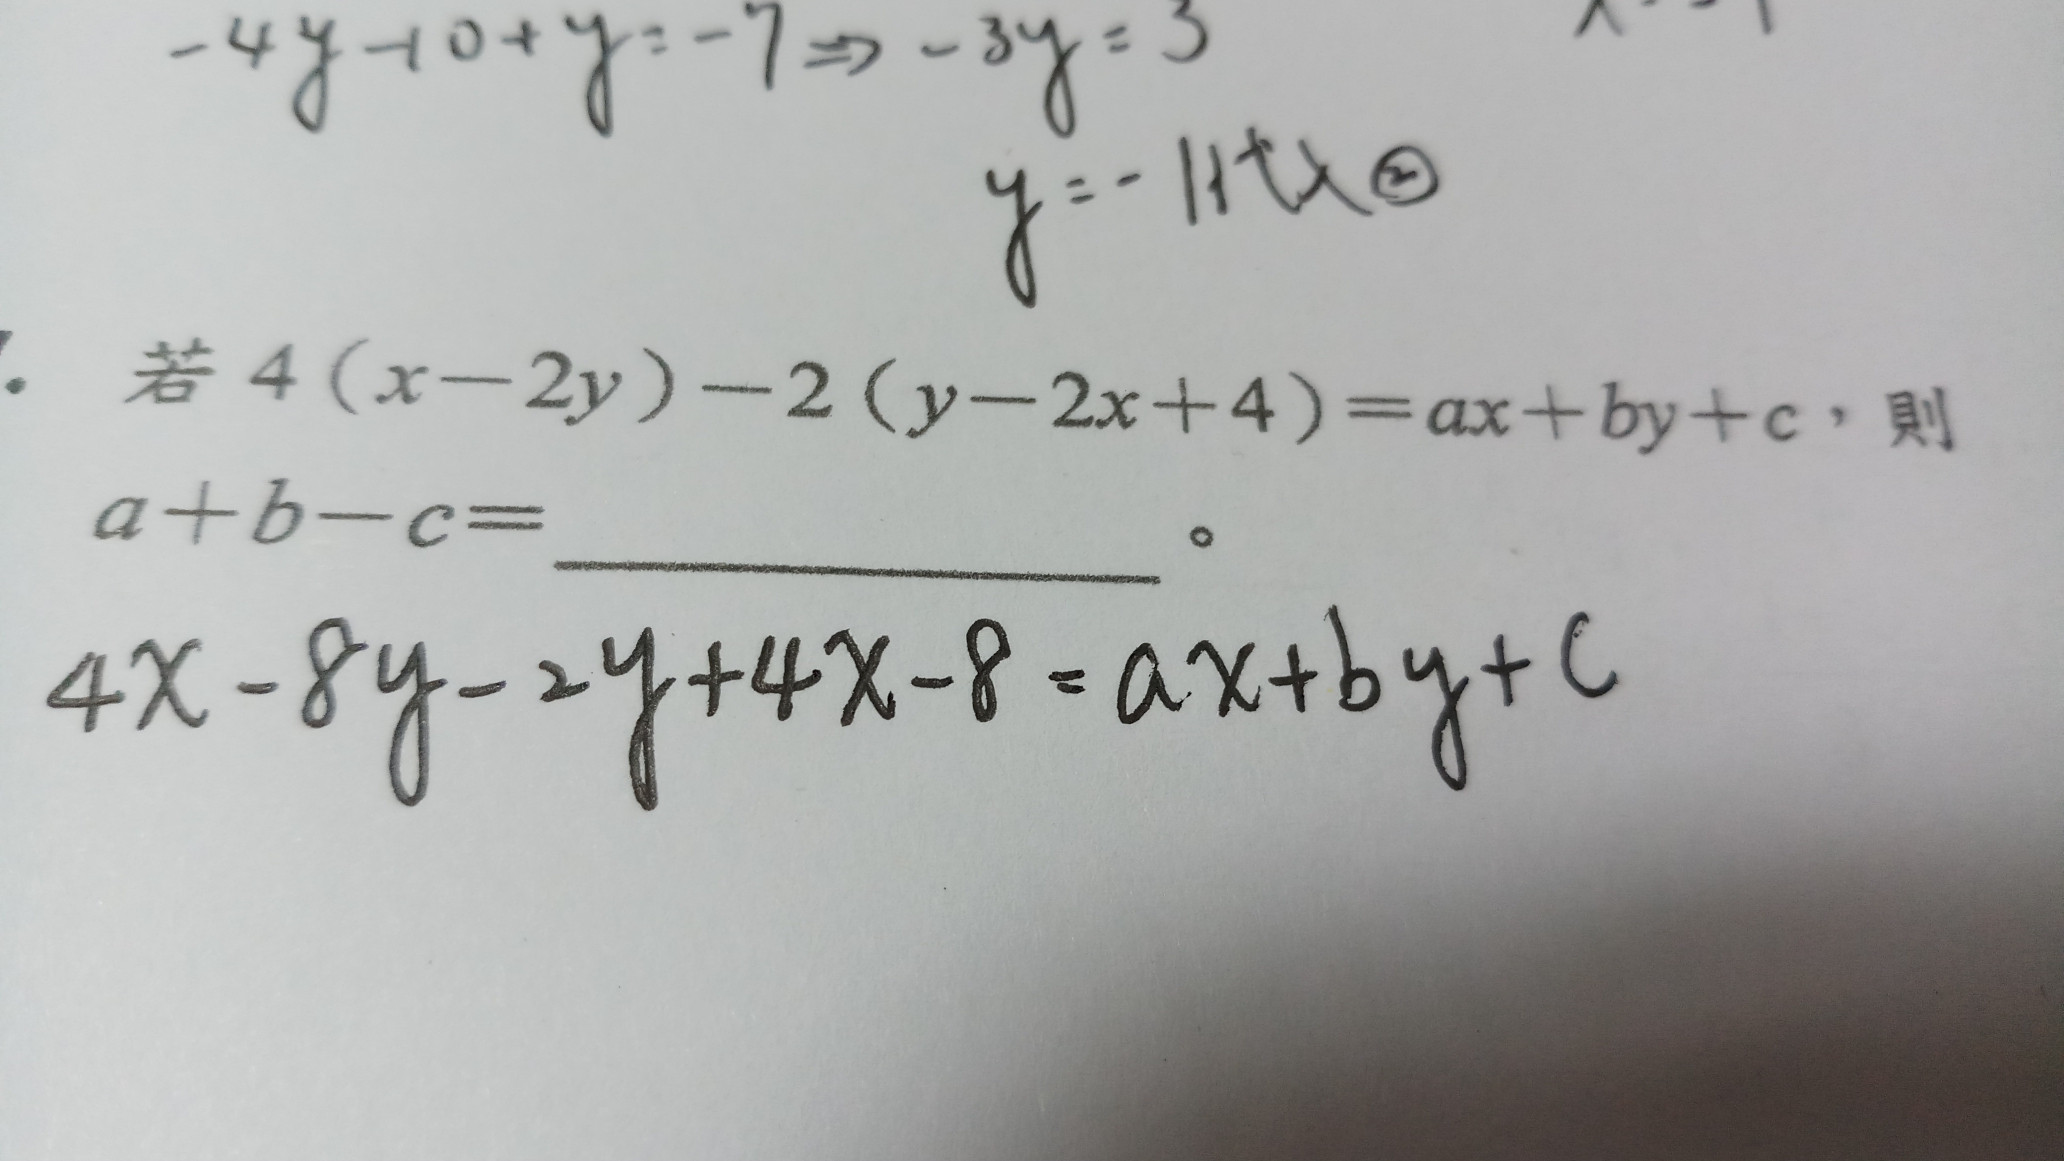 -4y-10+y=-7⇒-3y=3
y=-1代入②
若4(x－2y)－2(y－2x＋4)＝ax＋by＋c，則
a＋b－c＝＿＿＿＿＿＿。
4x-8y-2y+4x-8=ax+by+c